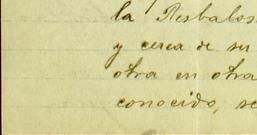 la Resbalos
y cerca de su
otra en otra
conocido, se